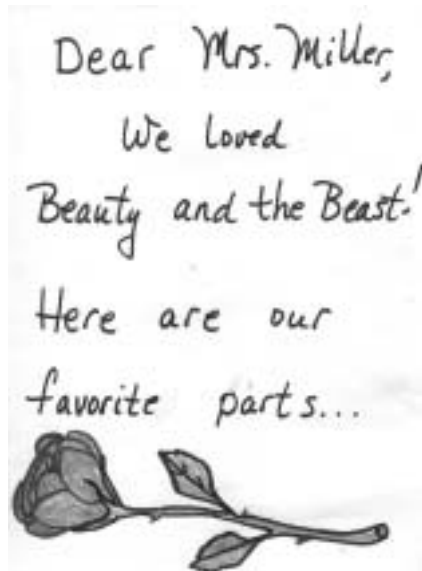 Dear Mrs. Miller,
We loved
Beauty and the Beast!
Here are our
favorite parts...